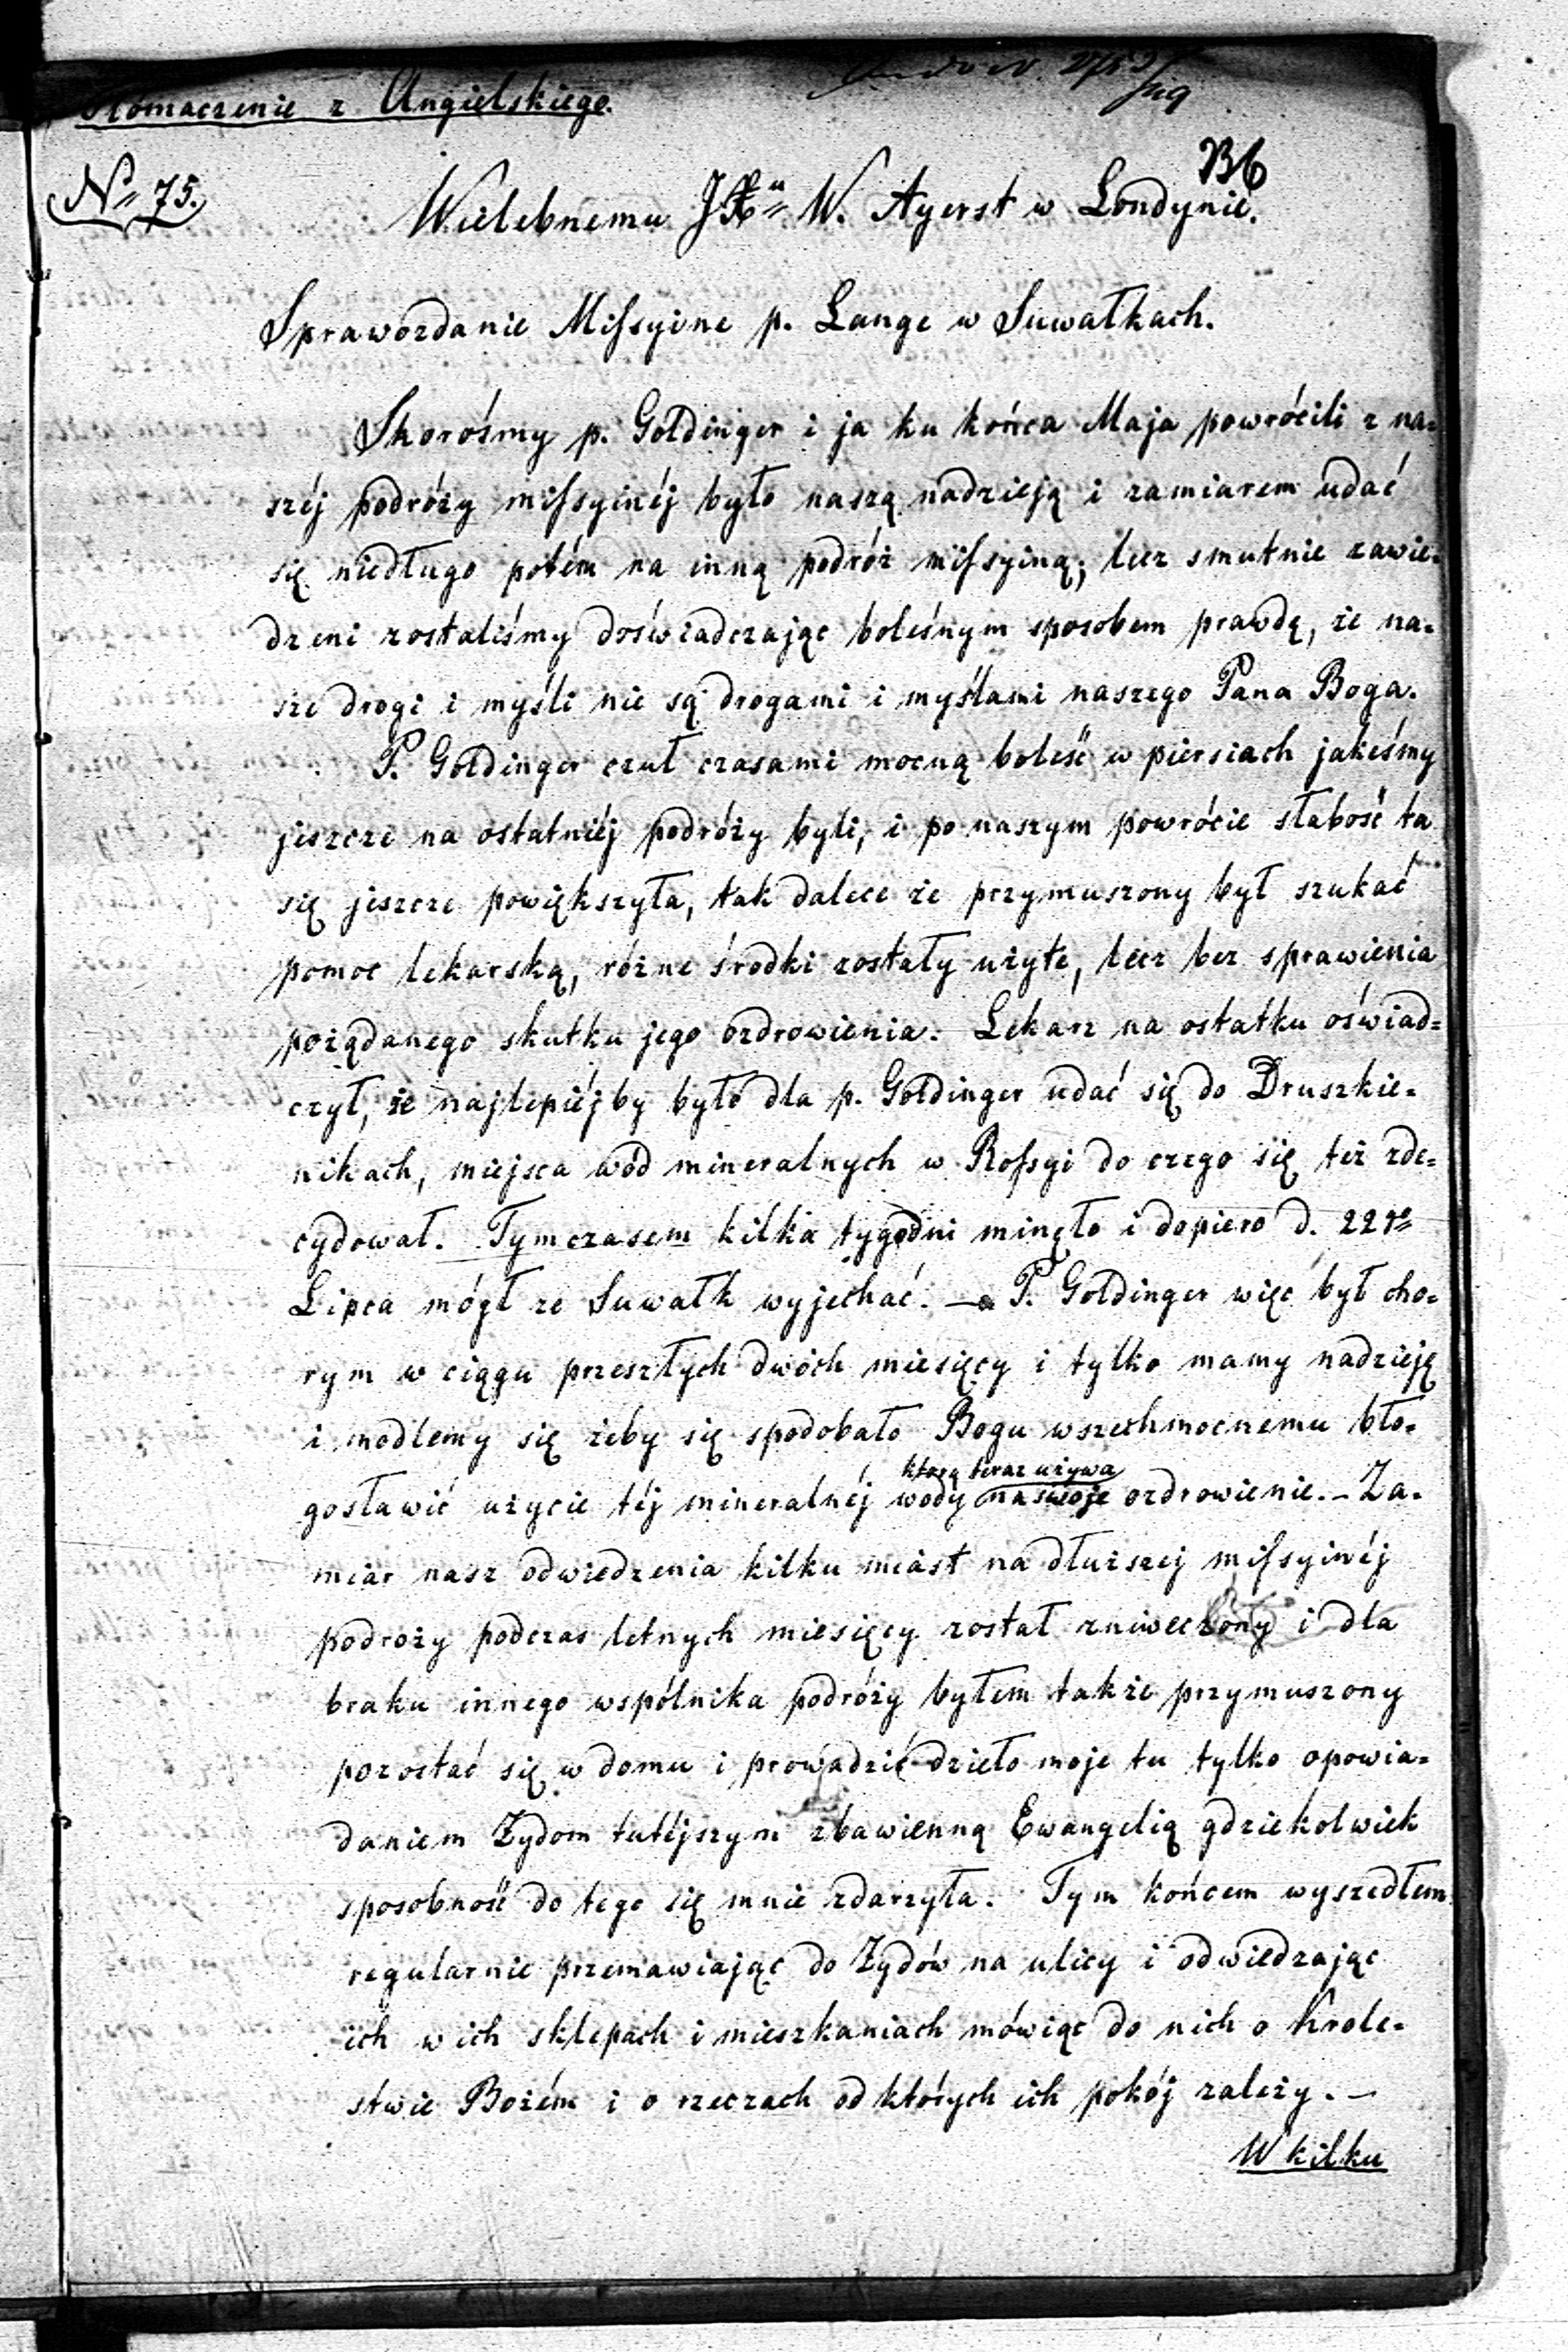 Tłomaczenie z Angielskiego.
236
No 75.
Wielebnemu JX. W. Ayerst w Londynie.
Sprawozdanie Missyine p. Lange w Suwałkach.
Skorośmy p. Goldinger i ja ku końca Maja powrócili z na-
széj podróży missyinéj było naszą nadzieją i zamiarem udać
się niedługo potém na inną podróż missyiną; lecz smutnie zawie-
dzeni zostaliśmy doświadczając boleśnym sposobem prawdę, że na-
sze drogi i myśli nie są drogami i myślami naszego Pana Boga.
P. Goldinger czuł czasami mocną boleść w piersiach jakeśmy
jeszcze na ostatniéj podróży byli, i po naszym powrócie słabość ta
się jeszcze powiększyła, tak dalece że przymuszony był szukać
pomoc lekarską, różne środki zostały użyte, lecz bez sprawienia
pożądanego skutku jego ozdrowienia. Lekarz na ostatku oświad-
czył, że najlepiéj by było dla p. Goldinger udać się do Druszkie-
nikach, miejsca wód mineralnych w Rossyi do czego się też zde-
cydował. Tymczasem kilka tygodni minęło i dopiero d. 22go
Lipca mógł ze Suwałk wyjechać. — P. Goldinger więc był cho-
rym w ciągu przeszłych dwóch miesięcy i tylko mamy nadzieję
i modlemy się żeby się spodobało Bogu wszechmocnemu bło-
którą teraz używa
gosławić użycie téj mineralnéj wody na swoje ozdrowienie. – Za-
miar nasz odwiedzenia kilku miast na dłuższej missyinéj
podroży podczas letnych miesięcy został zniweczony i dla
braku innego wspólnika podróży byłem także przymuszony
pozostać się w domu i prowadzić dzieło moje tu tylko opowia-
daniem Żydom tutéjszym zbawienną Ewangelią gdziekolwiek
sposobność do tego się mnie zdarzyła. Tym końcem wyszedłem
regularnie przemawiając do Żydów na ulicy i odwiedzając
ich w ich sklepach i mieszkaniach mówiąc do nich o Krole-
stwie Bożém i o rzeczach od których ich pokój zależy. —
W kilku